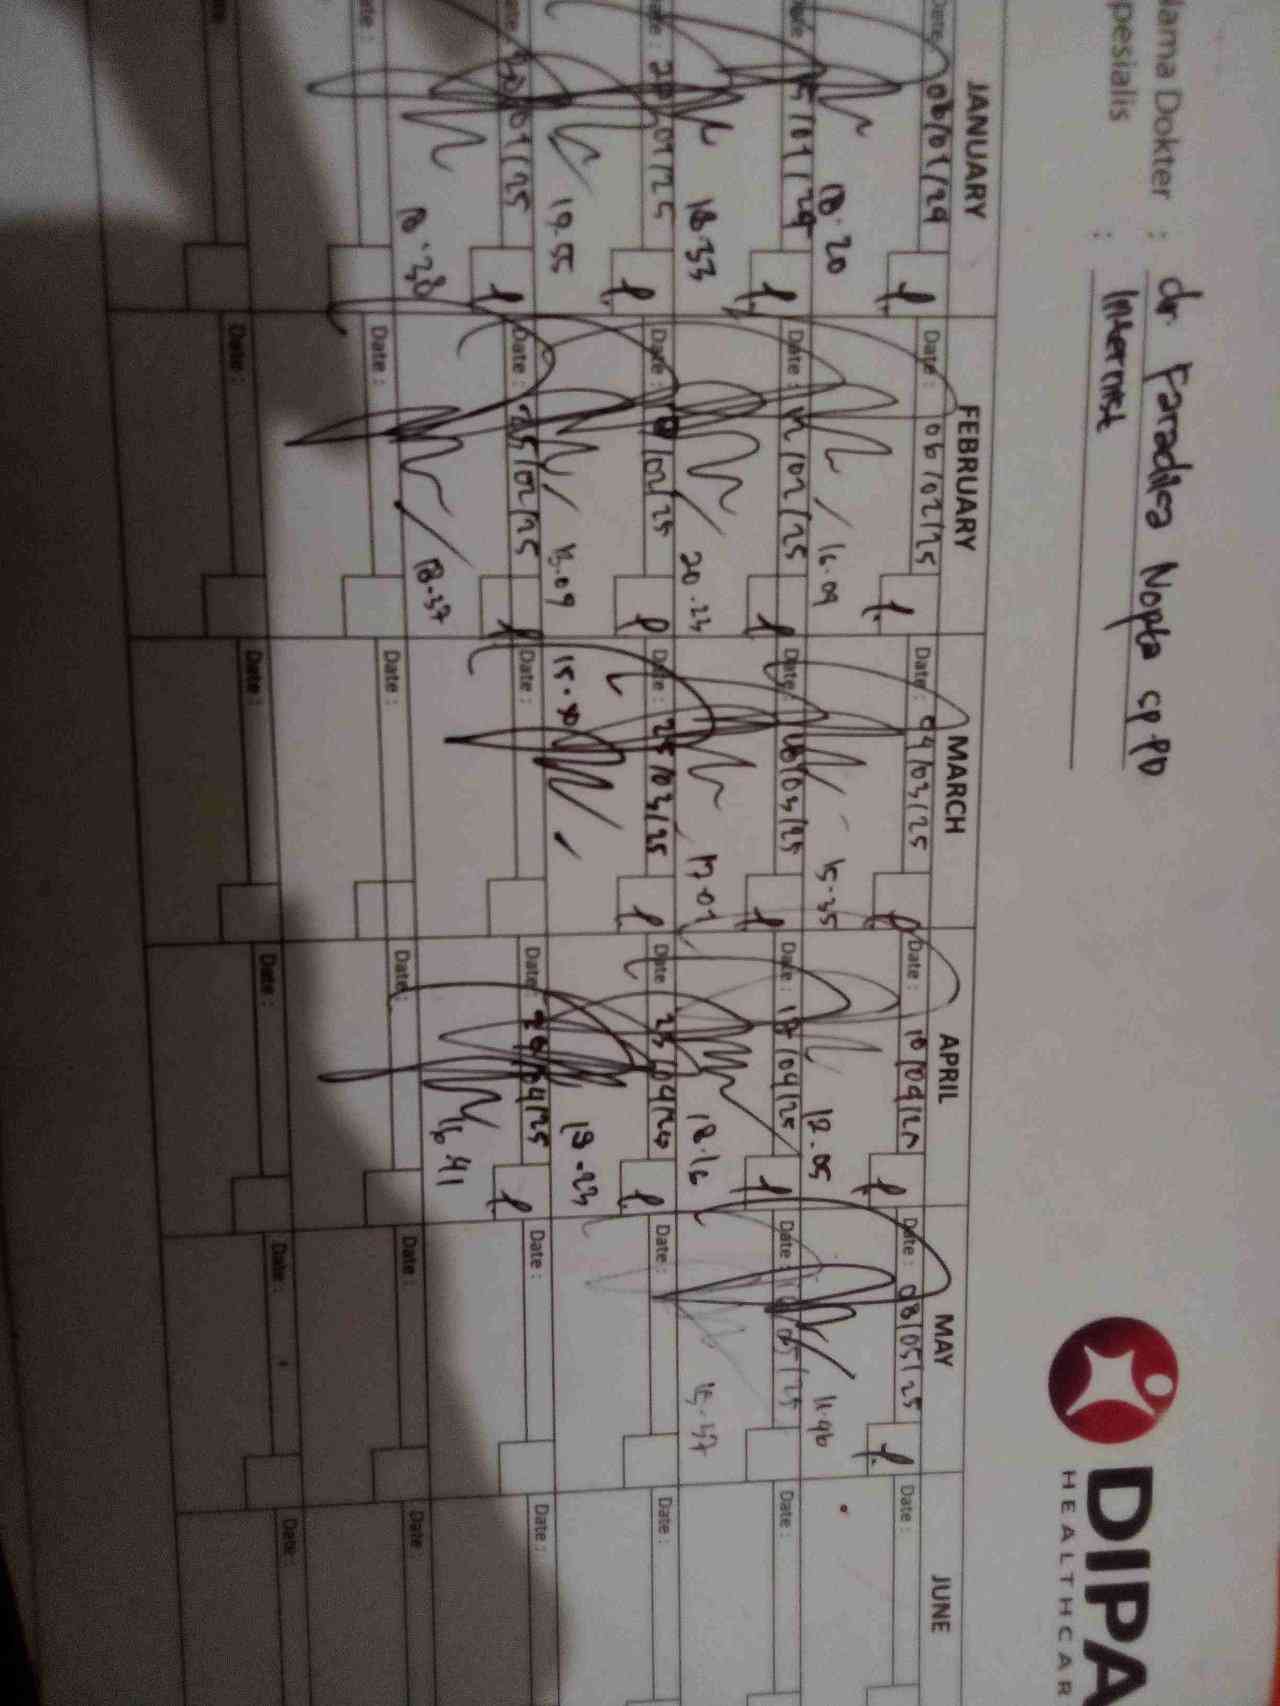 DIPA
HEALTHCAR
lama Dokter : dr. Faradilea Nopta sp.PD
pesialis : Internist
JANUARY FEBRUARY MARCH APRIL MAY JUNE
Date 06/01/29 Date : 06/02/25 Date : 04/03/25 Date : 10/04/25 Date : 08/05/25 Date :
18.20 16.09 15.35 12.05 11.46
15/01/29 Date : 11/02/25 Date : 18/03/25 Date : 17/04/25 Date : /05/25 Date :
18.33 20.23 17.01 18.16 18.37
Date : 22/01/25 Date : /02/25 Date : 25/03/25 Date 23/04/25 Date : Date :
19.55 13.09 15. 19.23
Date : 30/01/25 Date : 25/02/25 Date : Date : 28/04/25 Date : Date :
18.38 18.37 16.41
Date : Date : Date : Date : Date : Date :
Date : Date : Date : Date : Date :